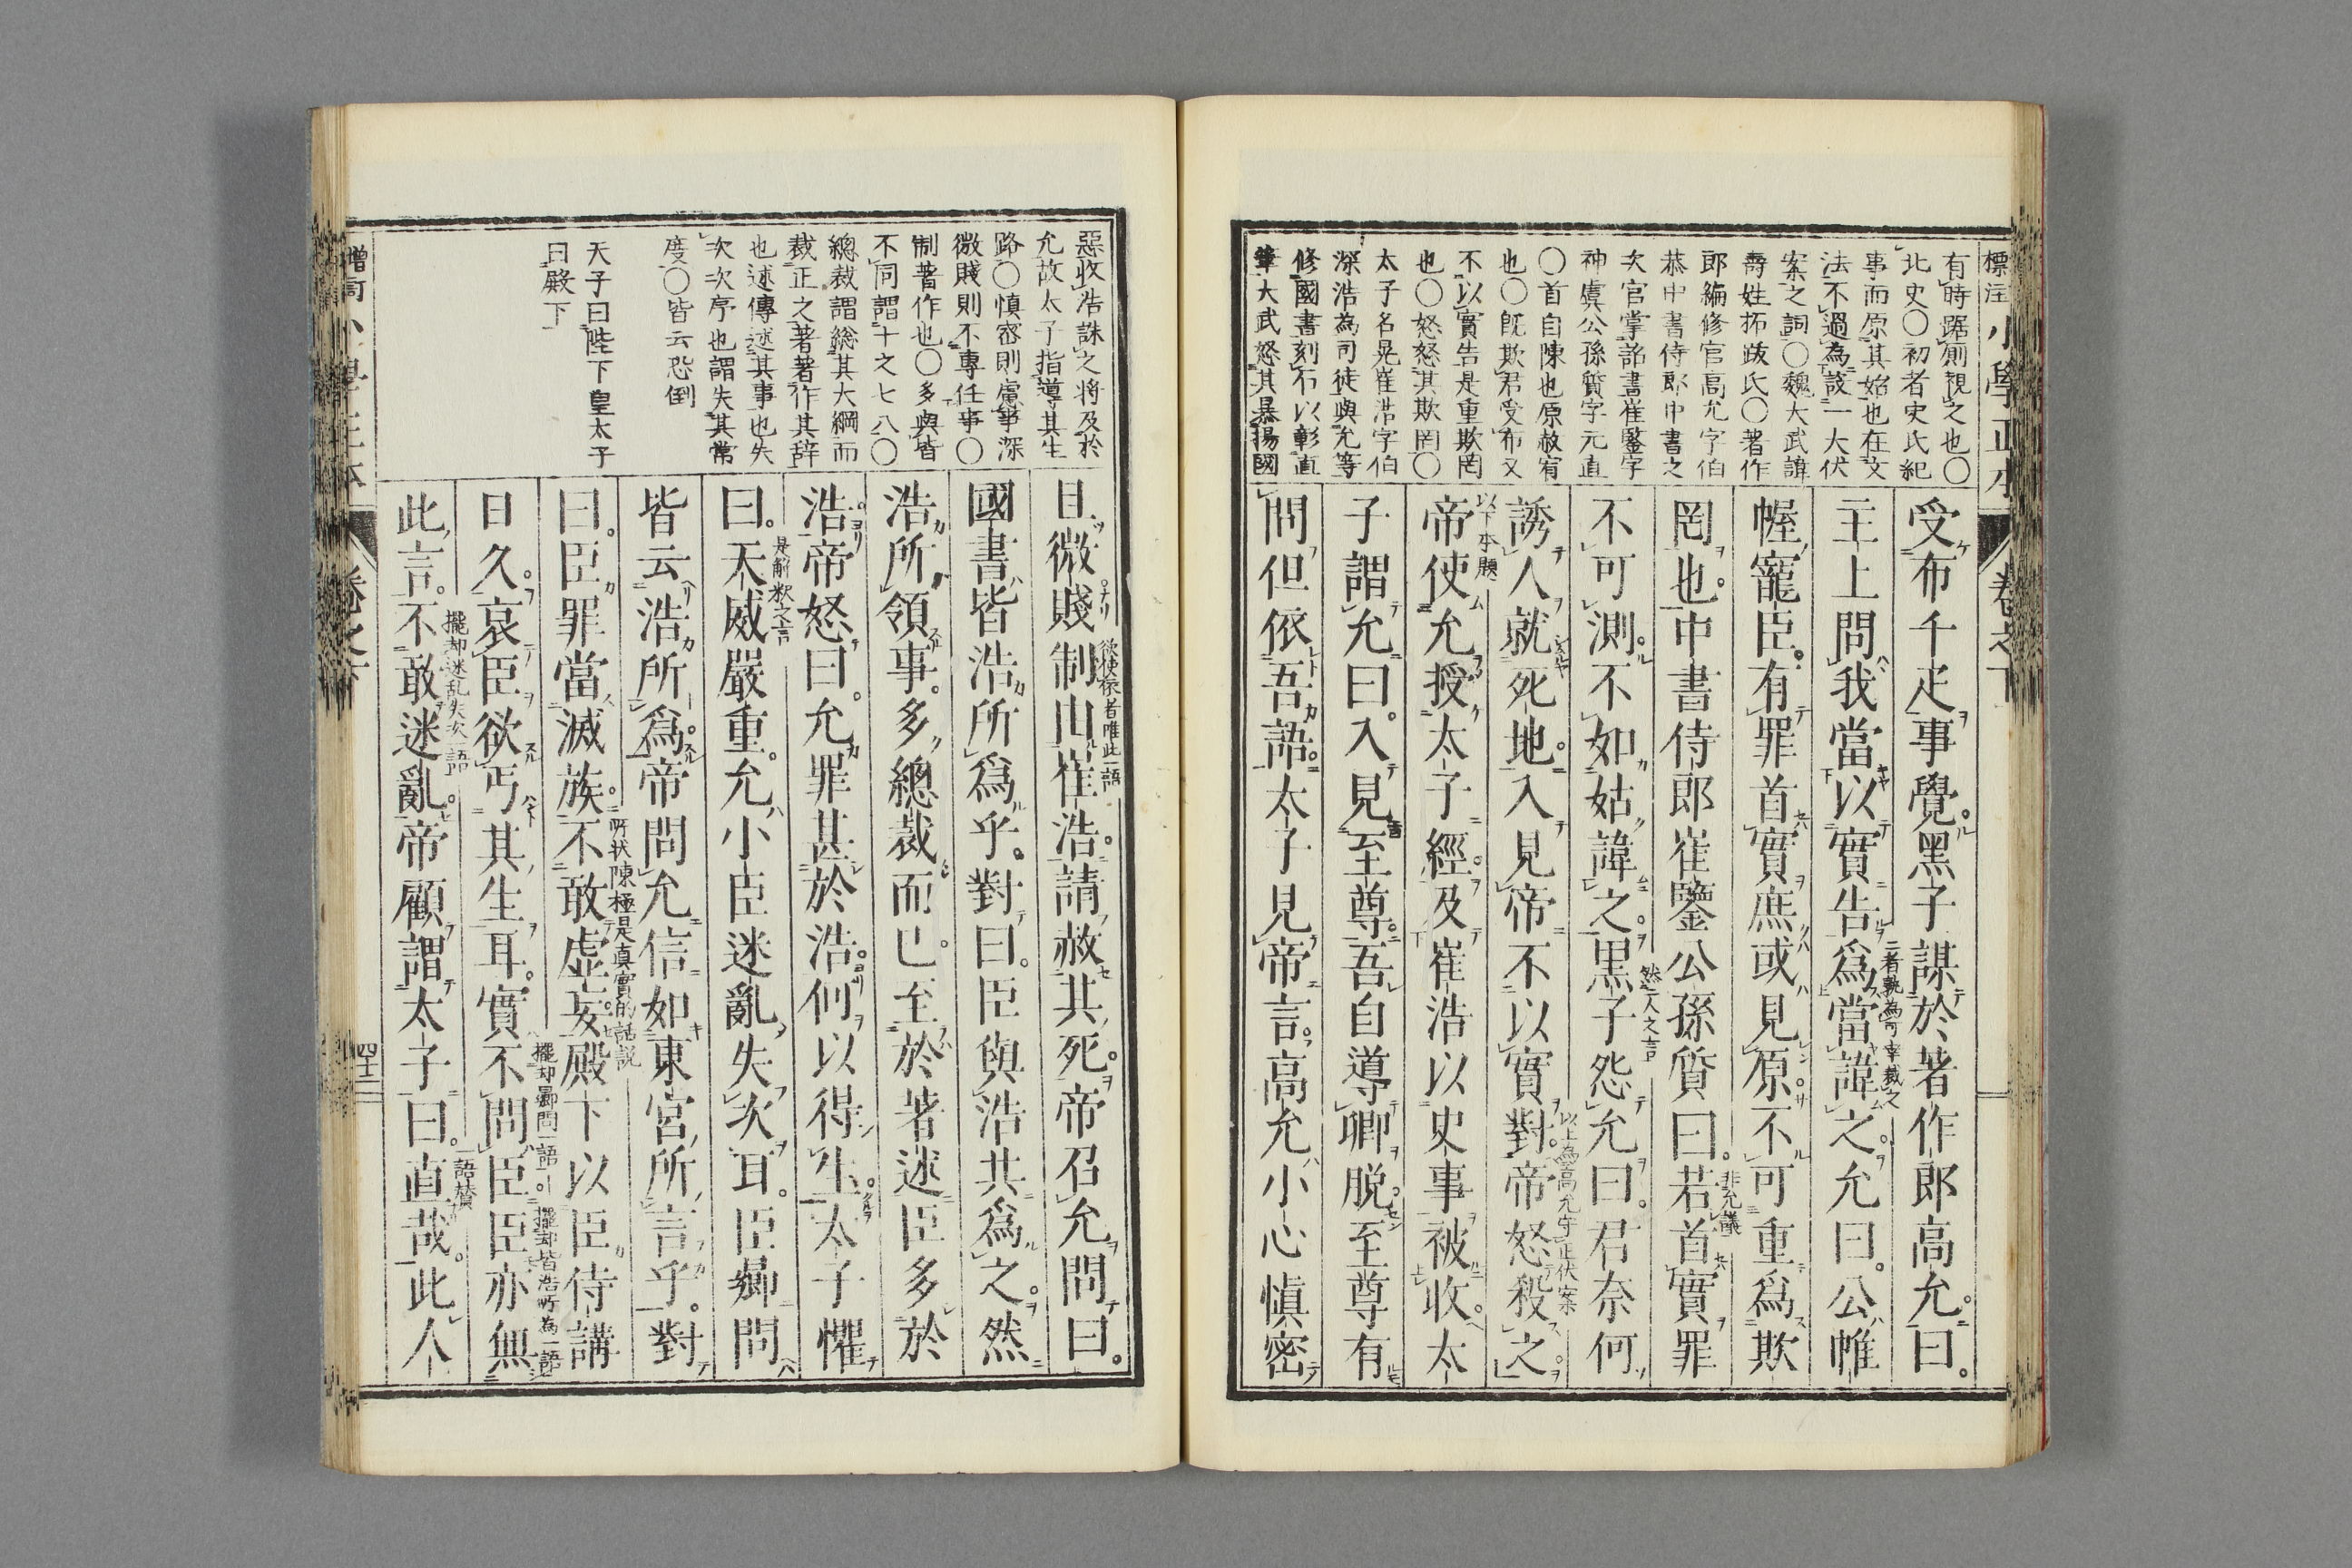 有時踞厠視之也〇
北史〇初者史氏紀
事而原其始也在文
法不過為設一大伏
案之詞〇魏大武諱
燾姓拓跋氏〇著作
郎編修官高允字伯
恭中書侍郎中書之
次官掌詔書崔鑒字
神具公孫質字元直
〇首自陳也原赦宥
也〇旣欺君受布又
不以實告是重欺罔
也〇怒怒其欺罔〇
太子名晃崔浩字伯
深浩為司徒與允等
修國書刻石以彰直
筆大武怒其暴揚國
受布千疋事覺黑子謀於著作郎高允曰
主上問我當以實告爲當諱之允曰公帷
二者孰為可幸裁之
幄寵臣有罪首實庶或見原不可重爲欺
罔也中書侍郎崔鑒公孫質曰若首實罪
非允議
不可測不如姑諱之黑子怨允曰君奈何
然二人之言
誘人就死地入見帝不以實對帝怒殺之
以上為高允守正伏案
帝使允授太子經及崔浩以史事被收太
以下本題
子謂允曰入見至尊吾自導卿脱至尊有
問但依吾語太子見帝言高允小心愼密
惡收浩誅之将及於
允故太子指導其生
路〇慎密則慮事深
微賤則不專任事〇
制著作也〇多與皆
不同謂十之七八〇
總裁謂総其大綱而
裁正之著著作其辞
也述傳述其事也失
次次序也謂失其常
度〇皆云恐倒
天子曰陛下皇太子
曰殿下
且微賤制由崔浩請赦其死帝召允問曰
欲使依者唯此一語
國書皆浩所爲乎對曰臣與浩共爲之然
浩所領事多總裁而已至於著述臣多於
浩帝怒曰允罪甚於浩何以得生太子懼
曰天威嚴重允小臣迷亂失次耳臣曏問
是解救之言
皆云浩所爲帝問允信如東宮所言乎對
曰臣罪當滅族不敢虛妄殿下以臣侍講
所状陳極是真實的話説
日久哀臣欲丐其生耳實不問臣臣亦無
擺却曏問一語
擺却皆浩所為一語
此言不敢迷亂帝顧謂太子曰直哉此人
擺却迷乱失次一語
一語賛
四十三